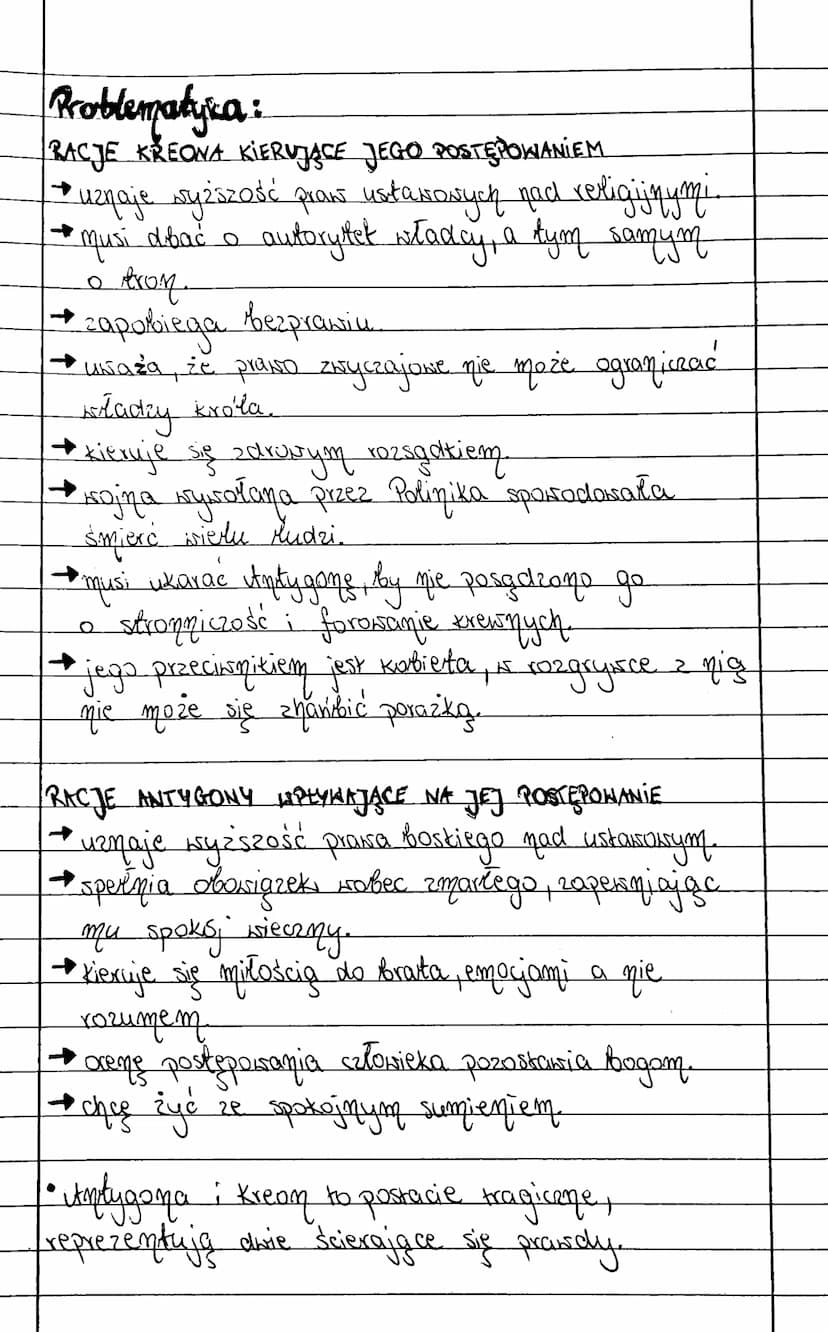 Problematyka:
RACJE KREONA KIERUJĄCE JEGO POSTĘPOWANIEM
→ uznaje wyższość praw ustawowych nad religijnymi.
→ musi dbać o autorytet władcy, a tym samym
o tron.
→ zapobiega bezprawiu.
→ uważa, że prawo zwyczajowe nie może ograniczać
władzy króla.
→ kieruje się zdrowym rozsądkiem.
→ wojna wywołana przez Polinika spowodowała
śmierć wielu ludzi.
→ musi ukarać Antygonę, by nie posądzono go
o stronniczość i forowanie krewnych.
→ jego przeciwnikiem jest kobieta, w rozgrywce z nią
nie może się zhańbić porażką.
RACJE ANTYGONY WPŁYWAJĄCE NA JEJ POSTĘPOWANIE
→ uznaje wyższość prawa boskiego nad ustawowym.
→ spełnia obowiązek wobec zmarłego, zapewniając
mu spokój wieczny.
→ kieruje się miłością do brata, emocjami a nie
rozumem.
→ ocenę postępowania człowieka pozostawia bogom.
→ chcę żyć ze spokojnym sumieniem.
• Antygona i Kreon to postacie tragiczne,
reprezentują dwie ścierające się prawdy.